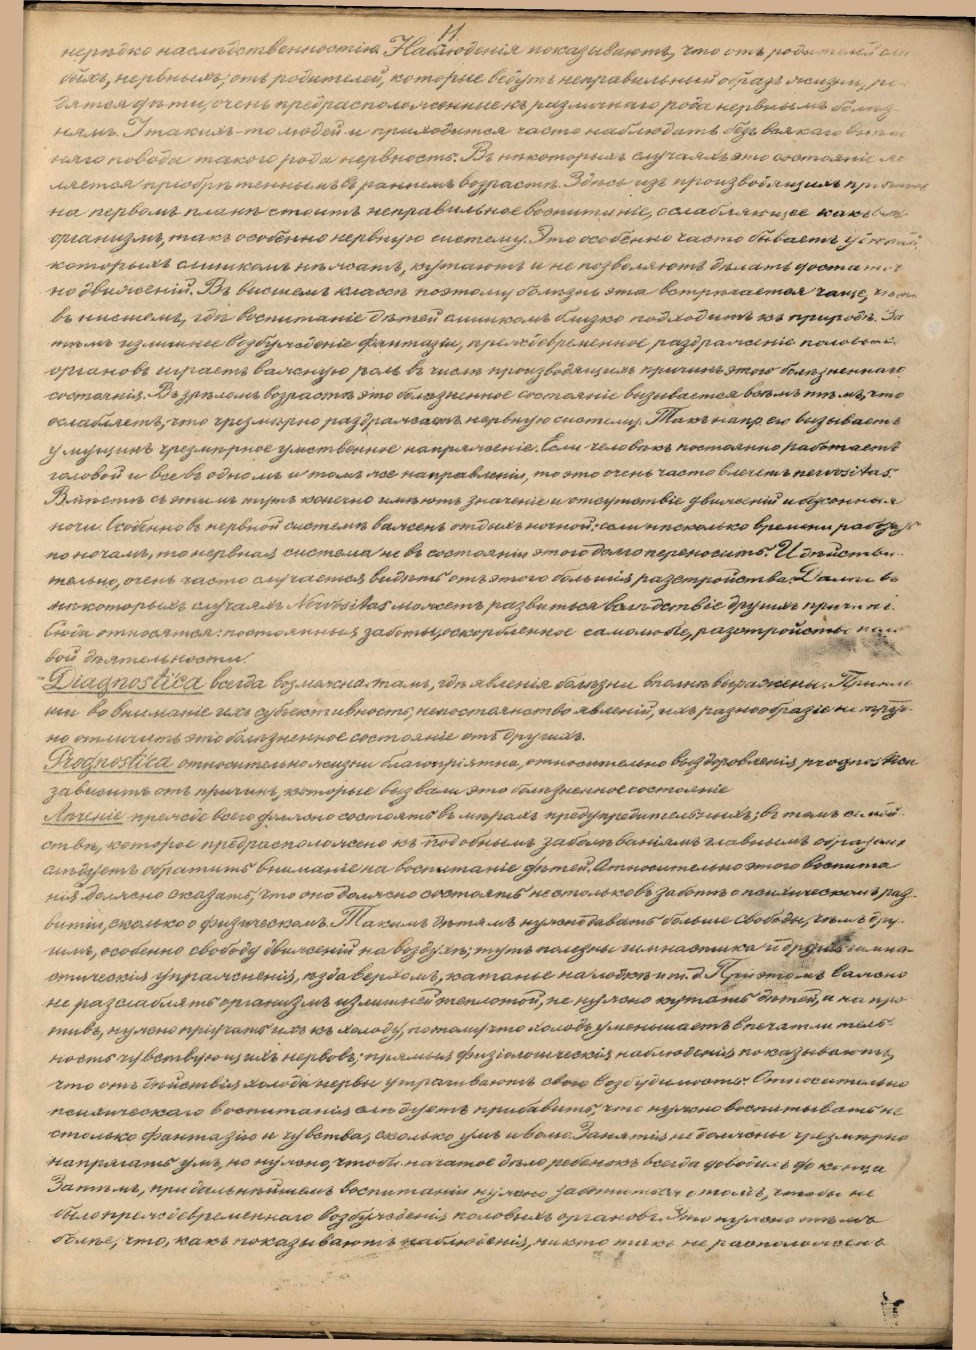 11.
нерѣдко наслѣдственностію. Наблюденія показываютъ, что отъ родителей сла
быхъ, нервныхъ, отъ родителей, которые ведутъ неправильный образъ жизни, ро
дятся дѣти, очень предрасположенные къ различнаго рода нервнымъ болѣз-
нямъ. У такихъ-то людей и приходится часто наблюдать безъ всякаго
няго повода такого рода нервность. Въ нѣкоторыхъ случаяхъ это состояніе яв
ляется пріобрѣтеннымъ въ раннемъ возрастѣ. Здѣсь изъ производящихъ причинъ
на первомъ планѣ стоитъ неправильное воспитаніе, ослабляющее какъ весь
организмъ, такъ особенно нервную систему. Это особенно часто бываетъ у дѣтей,
которыхъ слишкомъ нѣжатъ, кутаютъ и не позволяютъ дѣлать достаточ
но движеній. Въ высшемъ классѣ поэтому болѣзнь эта встрѣчается чаще, чѣмъ
въ нисшемъ, гдѣ воспитаніе дѣтей слишкомъ близко подходитъ къ природѣ. За
тѣмъ излишнее возбужденіе фантазіи, преждевременное раздраженіе половыхъ
органовъ играетъ важную роль въ числѣ производящихъ причинъ этого болѣзненнаго
состоянія. Въ зрѣломъ возрастѣ это болѣзненное состояніе вызывается всѣмъ тѣмъ, что
ослабляетъ, что чрезмѣрно раздражаетъ нервную систему. Такъ напр. его вызываетъ
у мущинъ чрезмѣрное умственное напряженіе. Если человѣкъ постоянно работаетъ
головой и все въ одномъ и томъ же направленіи, то это очень часто влечетъ nervositas.
Вмѣстѣ съ этимъ тутъ конечно имѣютъ значеніе и отсутствіе движеній и безсонныя
ночи. Особенно въ нервной системѣ важенъ отдыхъ ночной; если нѣсколько времени работать
по ночамъ, то нервная система не въ состояніи этого долго переносить. И дѣйстви-
тельно, очень часто случается видѣть отъ этого большія разстройства. Далѣе въ
нѣкоторыхъ случаяхъ Nervositas можетъ развиться вслѣдствіе другихъ причинъ.
Сюда относятся: постоянныя заботы, оскорбленное самолюбіе, разстройства поло
вой дѣятельности.
Diagnostica всегда возможна тамъ, гдѣ явленія болѣзни вполнѣ выражены. Приня
ли во вниманіе ихъ субъективность, непостоянство явленій, ихъ разнообразіе не труд-
но отличить это болѣзненное состояніе отъ другихъ.
Prognostica относительно жизни благопріятна, относительно выздоровленія prognostica
зависитъ отъ причинъ, которые вызвали это болѣзненное состояніе
Лѣченіе прежде всего должно состоять въ мѣрахъ предупредительныхъ; въ томъ семей-
ствѣ, которое предрасположено къ подобнымъ заболѣваніямъ главнымъ образомъ
слѣдуетъ обратить вниманіе на воспитаніе дѣтей. Относительно этого воспита
нія должно сказать, что оно должно состоять не столько въ заботѣ о психическомъ раз-
витіи, сколько о физическомъ. Такимъ дѣтямъ нужно давать больше свободы, чѣмъ дру-
гимъ, особенно свободу движеній на воздухѣ; тутъ полезны гимнастика и другія гимна-
стическія упражненія, ѣзда верхомъ, катанье на лодкѣ и т. д. При этомъ важно
не разслаблять организмъ излишней теплотой, не нужно кутать дѣтей, а на про
тивъ, нужно пріучать ихъ къ холоду, потому что холодъ уменьшаетъ впечатлитель-
ность чувствующихъ нервовъ; прямыя физіологическія наблюденія показываютъ,
что отъ дѣйствія холода нервы утрачиваютъ свою возбудимость. Относительно
психическаго воспитанія слѣдуетъ прибавить, что нужно воспитывать не
столько фантазію и чувства, сколько умъ и волю. Занятія не должны чрезмѣрно
напрягать умъ, но нужно, чтобы начатое дѣло ребенокъ всегда доводилъ до конца
Затѣмъ, при дальнѣйшемъ воспитаніи нужно заботиться о томъ, чтобы не
было преждевременнаго возбужденія половыхъ органовъ. Это нужно тѣмъ
болѣе, что, какъ показываютъ наблюденія, никто такъ не расположенъ